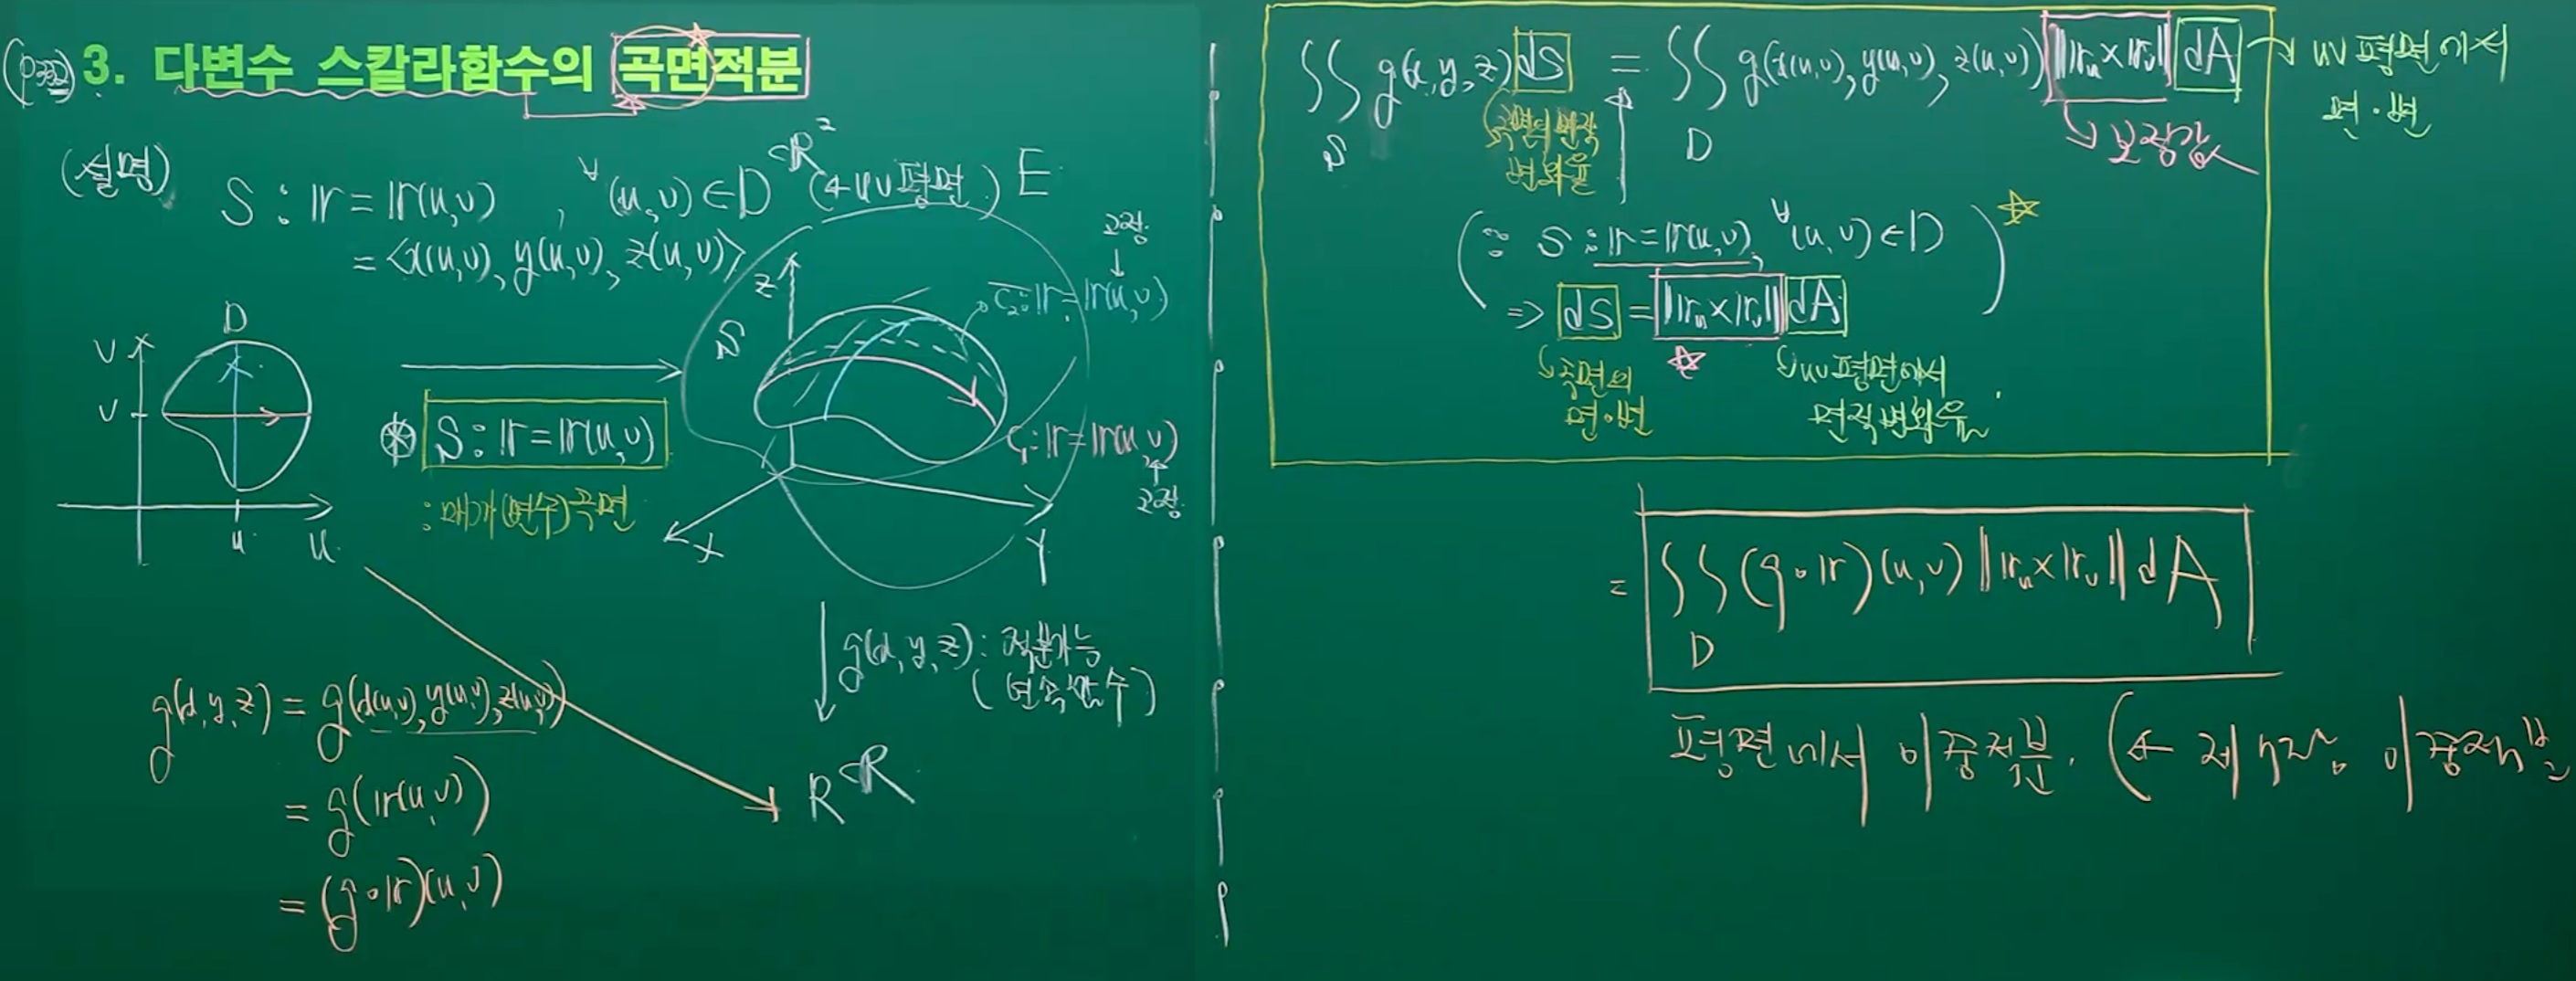 3. 다변수 스칼라함수의 곡면적분
(설명) S : r = r(u,v) , ∀(u,v)∈D⊂R² (← uv평면) E
= <x(u,v), y(u,v), z(u,v)>
D
v
v
u
u
⊛ S : r = r(u,v)
: 매개(변수)곡면
S
z
X
Y
고정
↓
C₂: r = r(u,v)
C₁: r = r(u,v)
↑
고정
g(x,y,z) : 적분가능
(연속함수)
R⊂R
g(x,y,z) = g(x(u,v), y(u,v), z(u,v))
= g(r(u,v))
= (g∘r)(u,v)
∬_S g(x,y,z) dS = ∬_D g(x(u,v), y(u,v), z(u,v)) ‖r_u×r_v‖ dA → uv평면에서
면·변
곡면의 면적
변화율
보정값
(∵ S : r = r(u,v), ∀(u,v)∈D) ☆
⇒ dS = ‖r_u×r_v‖ dA
☆
곡면의
면·변
uv평면에서
면적변화율
= ∬_D (g∘r)(u,v) ‖r_u×r_v‖ dA
평면에서 이중적분. (← 이중적분